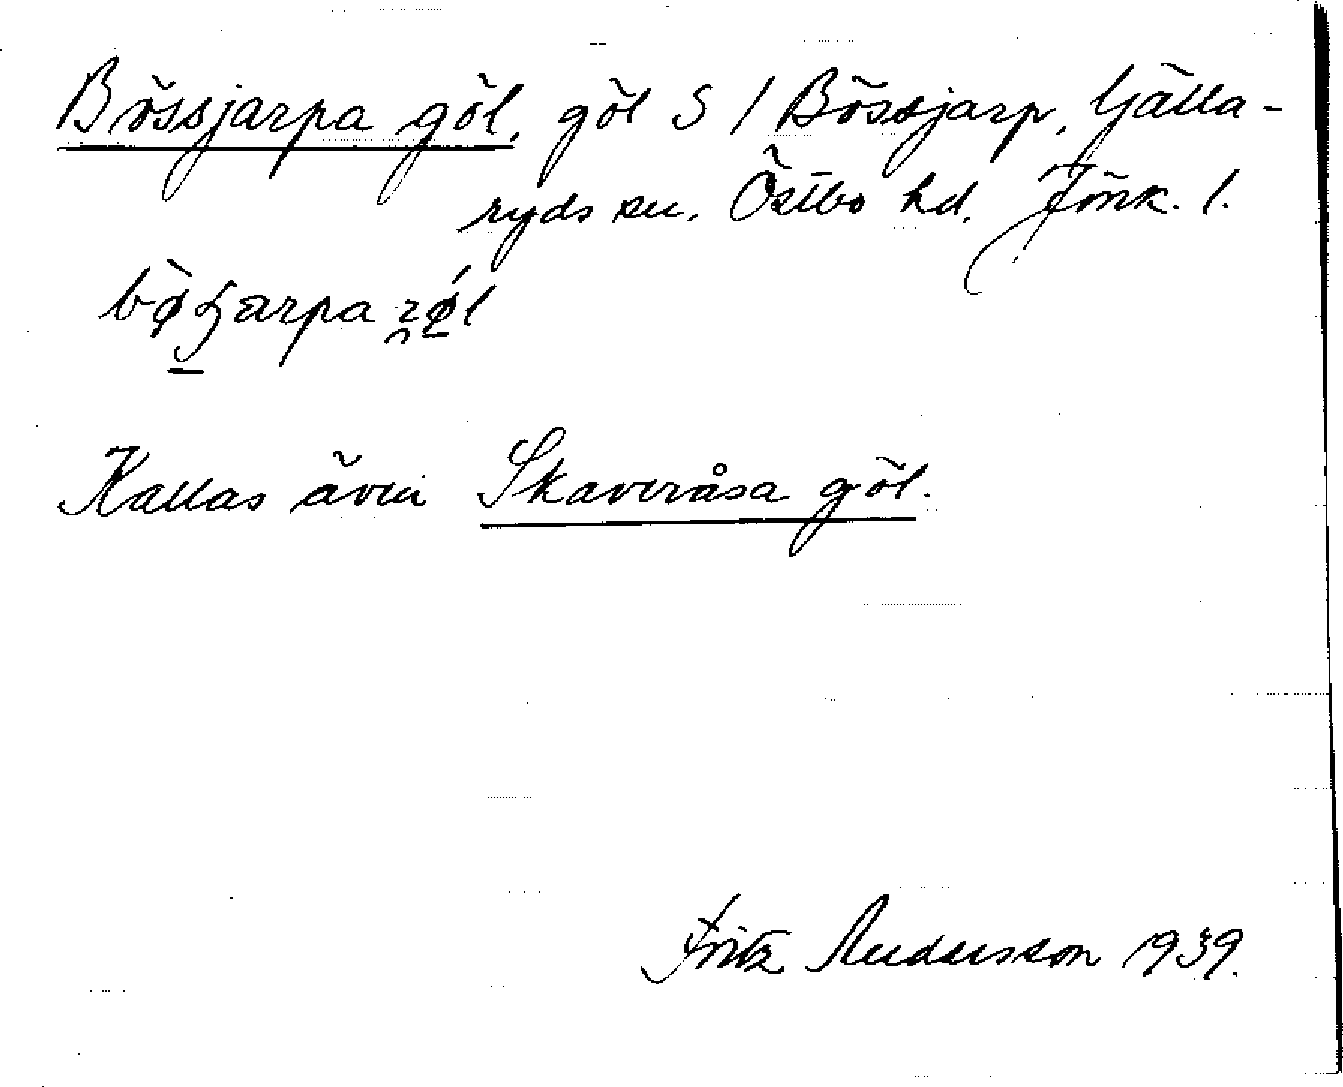 Bössjarpa göl, göl S / Bössjarp, Gälla-
ryds sn. Östbo hd. Jönk. l.
Kallas även Skaveråsa göl.
Fritz Andersson 1939.